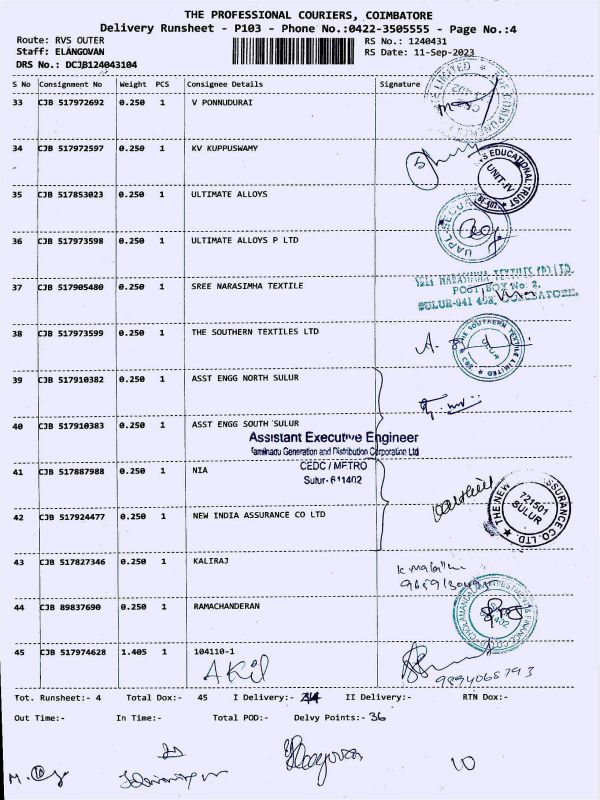 THE PROFESSIONAL COURIERS, COIMBATORE
Delivery Runsheet - P103 - Phone No.:0422-3505555 - Page No.:4
Route: RVS OUTER RS No.: 1240431
Staff: ELANGOVAN RS Date: 11-Sep-2023
DRS No.: DCJB124043104
S No Consignment No Weight PCS Consignee Details Signature
33 CJB 517972692 0.250 1 V PONNUDURAI
34 CJB 517972597 0.250 1 KV KUPPUSWAMY
S EDUCATIONAL TRUST
UNIT-IV
35 CJB 517853023 0.250 1 ULTIMATE ALLOYS
36 CJB 517973598 0.250 1 ULTIMATE ALLOYS P LTD
37 CJB 517905480 0.250 1 SREE NARASIMHA TEXTILE
NARASIMHA TEXTILES (P) LTD.
POST BOX No: 2,
38 CJB 517973599 0.250 1 THE SOUTHERN TEXTILES LTD
THE SOUTHERN TEXTILE LIMITED
39 CJB 517910382 0.250 1 ASST ENGG NORTH SULUR
40 CJB 517910383 0.250 1 ASST ENGG SOUTH SULUR
Assistant Executive Engineer
Tamilnadu Generation and Distribution Corporation Ltd
CEDC / METRO
41 CJB 517887988 0.250 1 NIA
Sulur- 641402
THE NEW ASSURANCE CO. LTD.
721501
SULUR
42 CJB 517924477 0.250 1 NEW INDIA ASSURANCE CO LTD
43 CJB 517827346 0.250 1 KALIRAJ
44 CJB 89837690 0.250 1 RAMACHANDERAN
45 CJB 517974628 1.405 1 104110-1
AKil
9894068793
Tot. Runsheet:- 4 Total Dox:- 45 I Delivery:- II Delivery:- RTN Dox:-
Out Time:- In Time:- Total POD:- Delvy Points:- 36
10